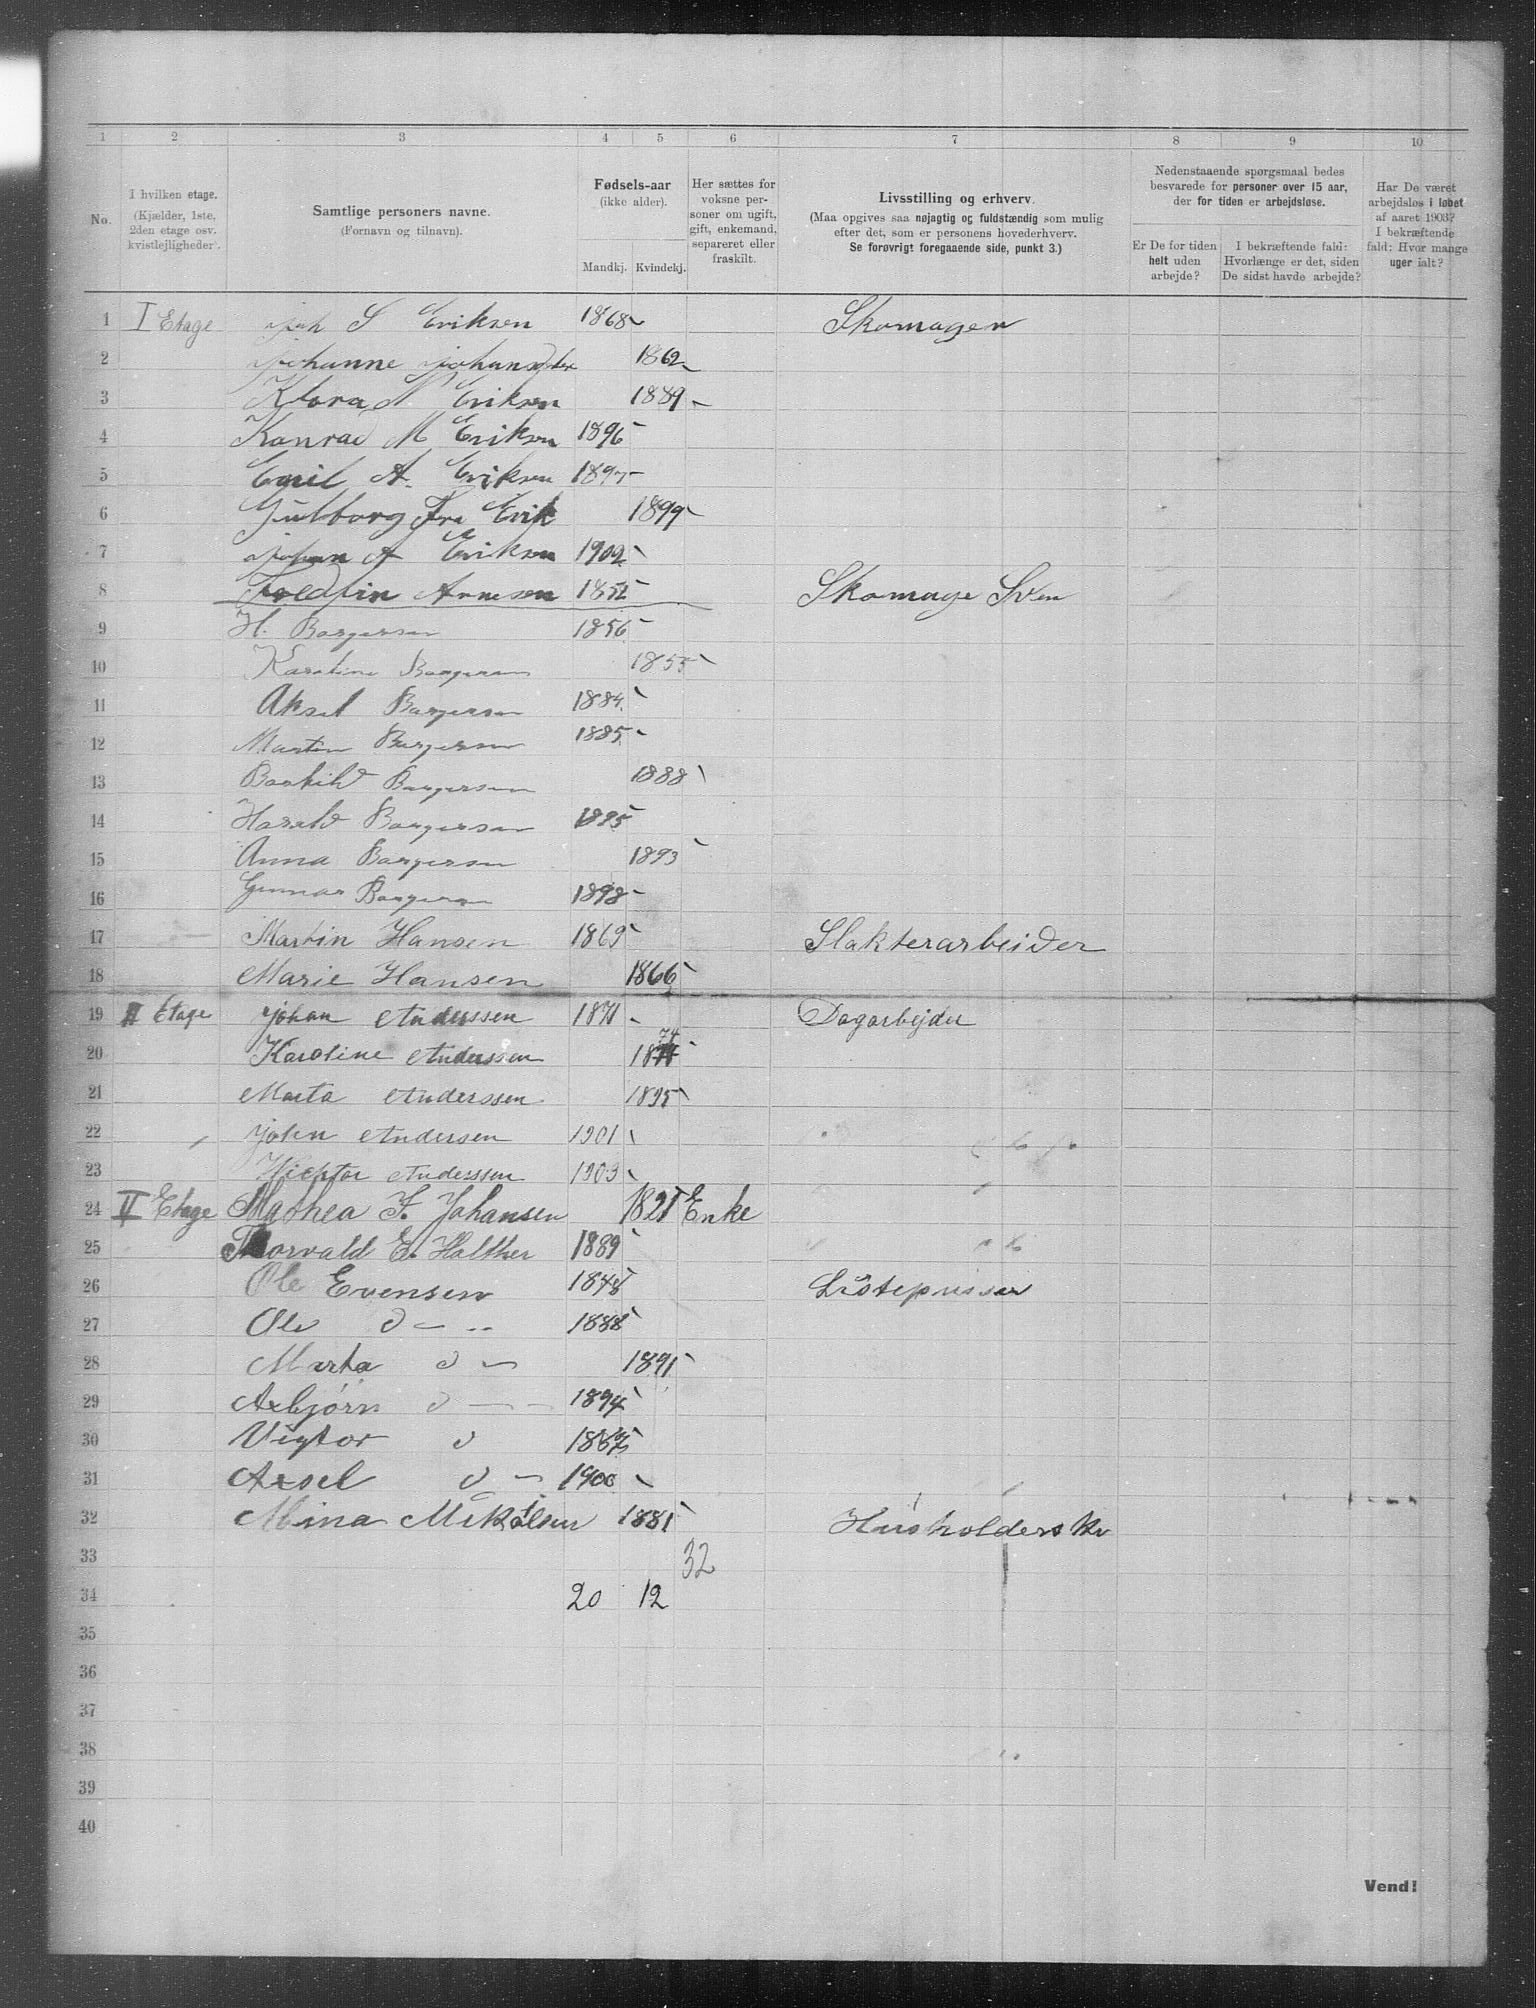 1 2 3 4 5 6 7 8 9 10
No.
I hvilken etage.
(Kjælder, 1ste,
2den etage osv.
kvistlejligheder).
Samtlige personers navne.
(Fornavn og tilnavn).
Fødsels-aar
(ikke alder).
Mandkj. Kvindekj.
Her sættes for
voksne per-
soner om ugift,
gift, enkemand,
separeret eller
fraskilt.
Livsstilling og erhverv.
(Maa opgives saa nøjagtig og fuldstændig som mulig
efter det, som er personens hovederhverv.
Se forøvrigt foregaaende side, punkt 3.)
Nedenstaaende spørgsmaal bedes
besvarede for personer over 15 aar,
der for tiden er arbejdsløse.
Er De for tiden
helt uden
arbejde?
I bekræftende fald:
Hvorlænge er det, siden
De sidst havde arbejde?
Har De været
arbejdsløs i løbet
af aaret 1903?
I bekræftende
fald: Hvor mange
uger ialt?
1 I Etage Joh S Eriksen 1868 Skomager
2 Johanne 1862
3 Klara N. Eriksen 1889
4 Konrad M Eriksen 1896
5 Emil A. Eriksen 1897
6 Gulborg Fra Erik 1899
7 Johan A Eriksen 1902
8 Arnesen Skomage Sven
9 H. Borgersen 1856
10 Karoline Borgersen 1855
11 Aksel Borgersen 1884
12 Martin Borgersen 1885
13 Borhild Borgersen 1888
14 Harald Borgersen 1895
15 Anna Borgersen 1893
16 Gunnar Borgersen 1898
17 Martin Hansen 1869 Slakterarbeider
18 Marie Hansen 1866
19 II Etage Johan Anderssen 1871 Dagarbejder
20 Karoline Anderssen 1874
21 Marta Anderssen 1895
22 John Andersen 1901
23 Viktor Anderssen 1903
24 IV Etage Mathea F. Johansen 1821 Enke
25 Thorvald E. Holther 1889
26 Ole Evensen 1848 Listepusser
27 Ole d 1888
28 Marta d 1891
29 Asbjørn d 1894
30 Vigtor d
31 Axsel d 1900
32 Mina Mikalsen 1881 Husholderske
33 32
34 20 12
35
36
37
38
39
40
Vend!